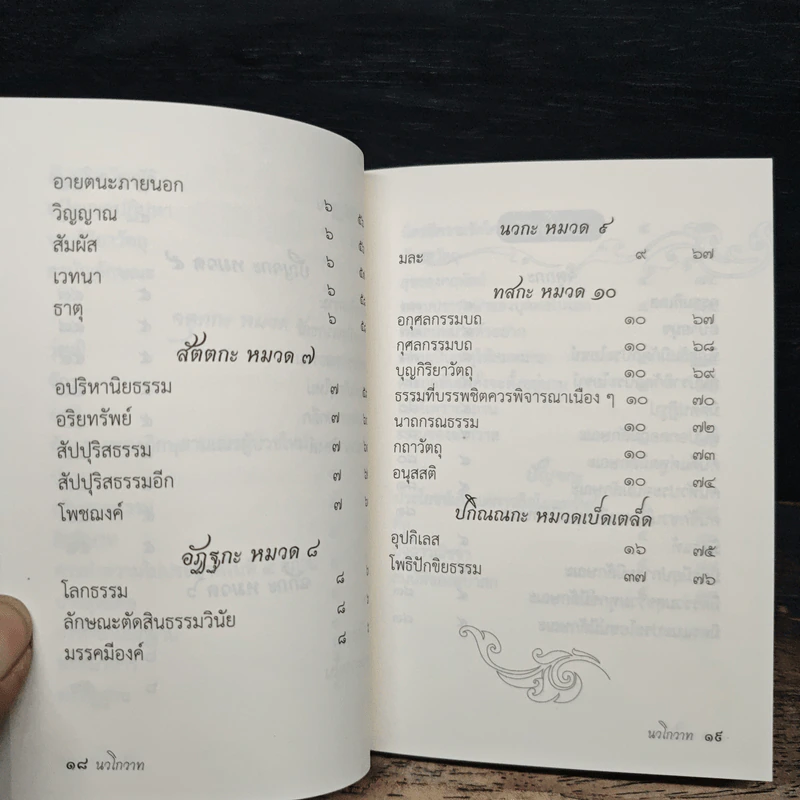 อายตนะภายนอก ๖
วิญญาณ ๖
สัมผัส ๖
เวทนา ๖
ธาตุ ๖
สัตตกะ หมวด ๗
อปริหานิยธรรม ๗
อริยทรัพย์ ๗
สัปปุริสธรรม ๗
สัปปุริสธรรมอีก ๗
โพชฌงค์ ๗
อัฏฐกะ หมวด ๘
โลกธรรม ๘
ลักษณะตัดสินธรรมวินัย ๘
มรรคมีองค์ ๘
๑๘ นวโกวาท
นวกะ หมวด ๙
มละ ๙ ๖๗
ทสกะ หมวด ๑๐
อกุศลกรรมบถ ๑๐ ๖๗
กุศลกรรมบถ ๑๐ ๖๘
บุญกิริยาวัตถุ ๑๐ ๖๙
ธรรมที่บรรพชิตควรพิจารณาเนือง ๆ ๑๐ ๗๐
นาถกรณธรรม ๑๐ ๗๒
กถาวัตถุ ๑๐ ๗๓
อนุสสติ ๑๐ ๗๔
ปกิณณกะ หมวดเบ็ดเตล็ด
อุปกิเลส ๑๖ ๗๕
โพธิปักขิยธรรม ๓๗ ๗๖
นวโกวาท ๑๙